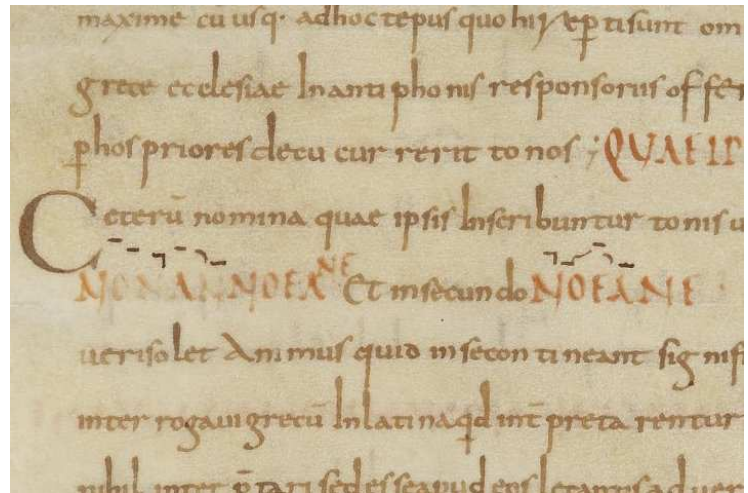 maxime cū usq; adhoc tēpus quo hii rep̄ti sunt om
grece ecclesiae In anti pho nis responsoriis offer
p̄hos priores decu cur rerit to nos ; QUAE IP
Ceterū nomina quae ipsis Inscribuntur tonis u
NONANNOEANE Et in secundo NOEANE
uerisolet Animus quid in se con ti neant sig nif
inter rogaui grecū In latina qd intp̄reta rentur
nihil inter p̄tari sed esse apud eos letantis aduer